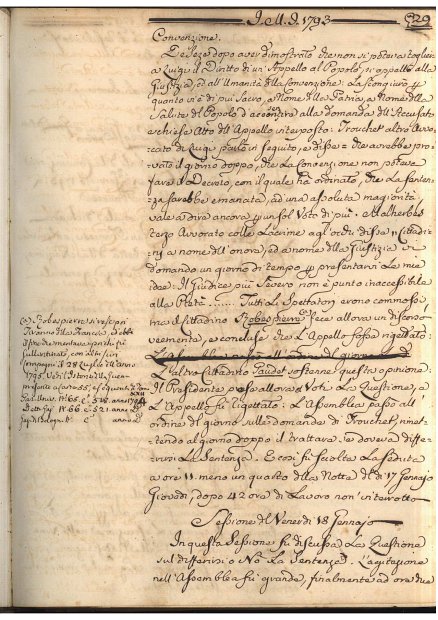 I.M.D. 1793
529
Convenzione.
De Seze dopo aver dimostrato che non si poteva togliere
a Luigi il Diritto di un' Appello al Popolo, si appellò alla
Giustizia, ed all' Umanità della Convenzione. La scongiurò p
quanto vi è di più Sacro, a Nome della Patria, a Nome della
Salute del Popolo d' accordare alla domanda dell' Accusato
e chiese Atto dell' Appello interposto. Tronchet altro Avvo=
cato di Luigi parlò in seguito, e disse = che avrebbe pro=
vato il giorno doppo, che la Convenzione non poteva
fare il Decreto, con il quale ha ordinato, che la Senten=
za sarebbe emanata, ad una assoluta magiorità
vale a dire ancora p un sol Voto di più. Malherbes
terzo Avvorato colle Lacrime agl' ochi disse = Cittadi=
ni a nome dell' onore, ed a nome della Giustizia vi
domando un giorno di tempo p presentarvi Le mie
idee. Il Giudice più Severo non è punto inaccessibile
alla Pietà ...... Tutti Li Spettatori erono commossi
ma il cittadino Robespierre fece allora un discorso
veemente, e concluse che L' Appello fosse rigettato.
L' altro Cittadino sostenne questa opinione.
Il Presidente pose allora a Voti La Questione, e
L' Appello fù rigettato. L' Assemblea passò all'
ordine del giorno sulle domande di Tronchet, rimet=
tendo al giorno doppo il trattare, se doveva diffe=
rirsi La Sentenza. E così fù sciolta La Seduta
a ore 11. meno un quarto della Notte del dì 17 Gennajo
Giovedì, dopo 42 ore di Lavoro non interrotto
Sessione del Venerdì 18 Gennajo
In questa Sessione fù discussa La Questione
sul differirsi o Nò La Sentenza. L' agitazione
nell' Assemblea fù grande, finalmente ad ore due
(a) Robespierre si rese poi
Tiranno della Francia, ed ebbe
il fine di
con altri suoi
Compagni il 28 Luglio dell' anno
1794.